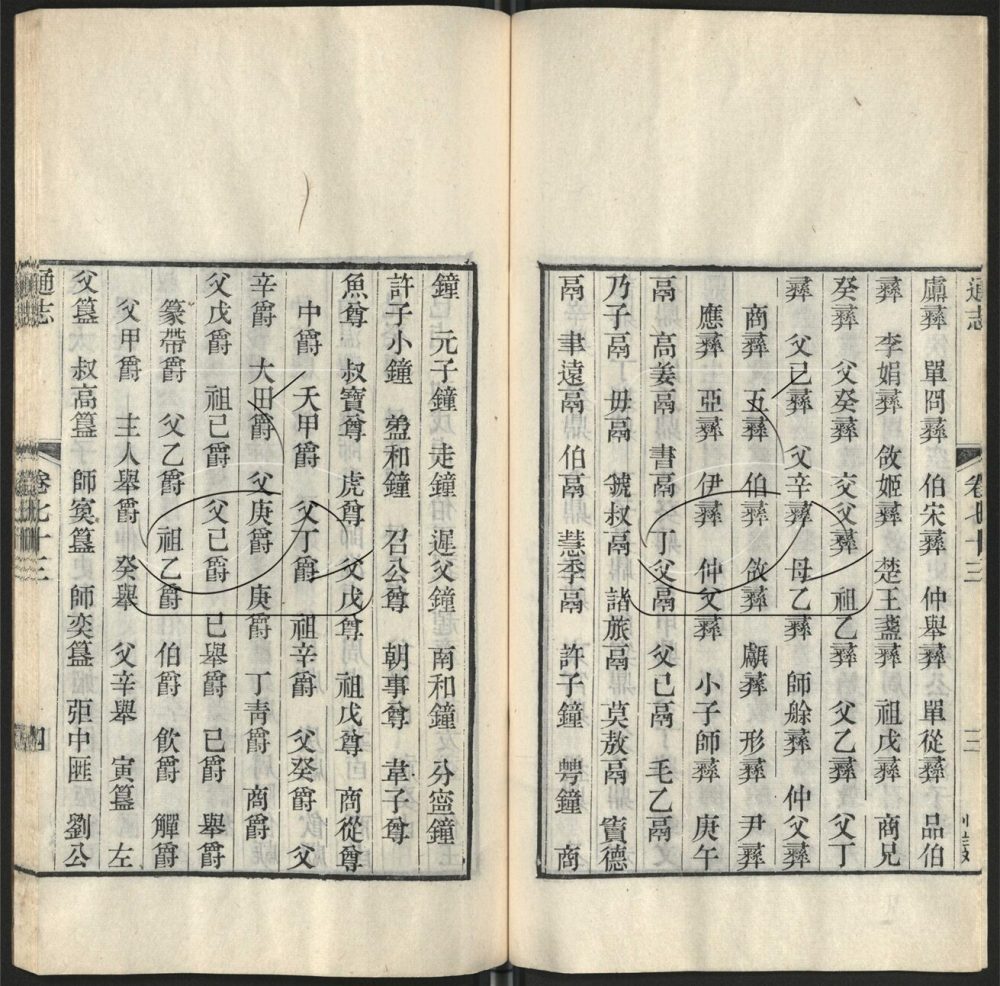 通志
卷七十三
三
鬳彝 單冏彝 伯宋彝 仲舉彝 單從彝 品伯
彝 李娟彝 敀姬彝 楚王盞彝 祖戊彝 商兄
癸彝 父癸彝 交父彝 祖乙彝 父乙彝 父丁
彝 父己彝 父辛彝 母乙彝 師艅彝 仲父彝
商彝 五彝 伯彝 敀彝 彝 形彝 尹彝
應彝 亞彝 伊彝 仲父彝 小子師彝 庚午
鬲 高姜鬲 書鬲 丁父鬲 父己鬲 毛乙鬲
乃子鬲 毋鬲 虢叔鬲 諸旅鬲 莫敖鬲 賓德
鬲 聿遠鬲 伯鬲 慧季鬲 許子鐘 鐘 商
鐘 元子鐘 走鐘 遲父鐘 南和鐘 分寍鐘
許子小鐘 盄和鐘 召公尊 朝事尊 韋子尊
魚尊 叔寶尊 虎尊 父戊尊 祖戊尊 商從尊
中爵 天甲爵 父丁爵 祖辛爵 父癸爵 父
辛爵 大田爵 父庚爵 庚爵 丁青爵 商爵
父戊爵 祖己爵 父己爵 己舉爵 己爵 舉爵
篆帶爵 父乙爵 祖乙爵 伯爵 飲爵 觶爵
父甲爵 主人舉爵 癸舉 父辛舉 寅簋 左
父簋 叔高簋 師寏簋 師奕簋 弡中匜 劉公
通志
卷七十三
四